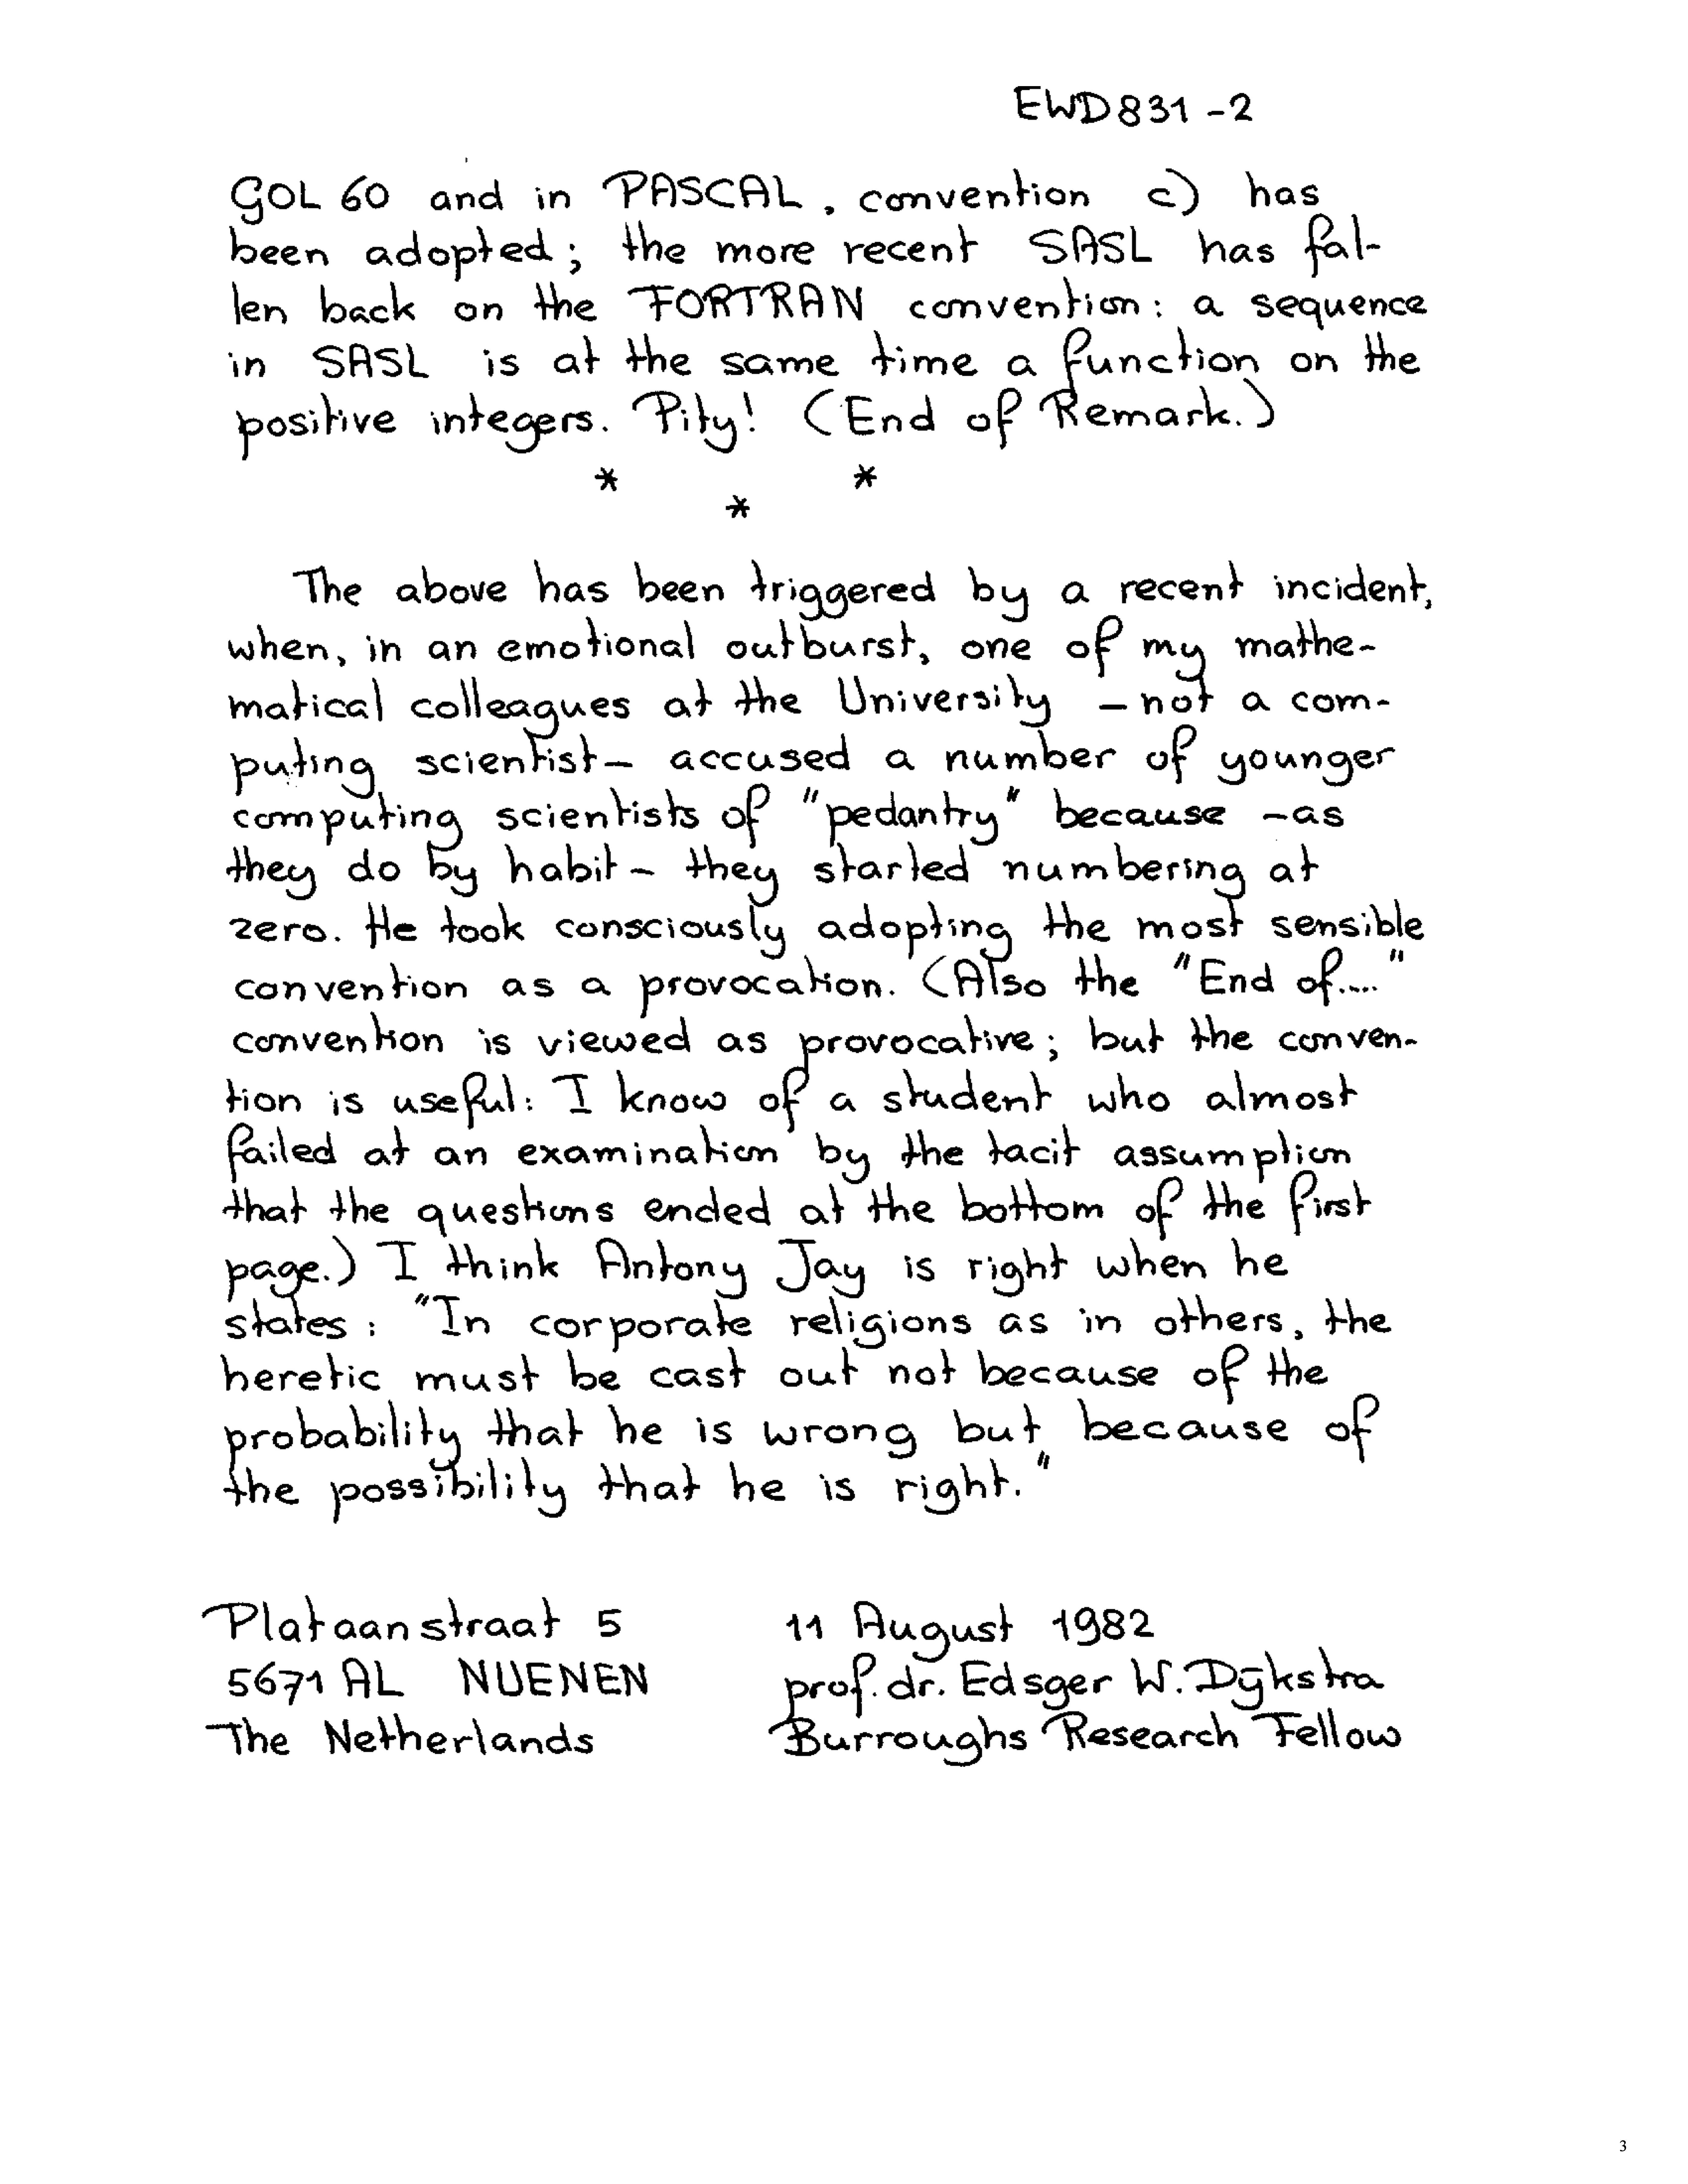 EWD831-2
GOL 60 and in PASCAL, convention c) has
been adopted; the more recent SASL has fal-
len back on the FORTRAN convention: a sequence
in SASL is at the same time a function on the
positive integers. Pity! (End of Remark.)
* *
*
The above has been triggered by a recent incident,
when, in an emotional outburst, one of my mathe-
matical colleagues at the University –not a com-
puting scientist– accused a number of younger
computing scientists of "pedantry" because –as
they do by habit– they started numbering at
zero. He took consciously adopting the most sensible
convention as a provocation. (Also the "End of...."
convention is viewed as provocative; but the conven-
tion is useful: I know of a student who almost
failed at an examination by the tacit assumption
that the questions ended at the bottom of the first
page.) I think Antony Jay is right when he
states: "In corporate religions as in others, the
heretic must be cast out not because of the
probability that he is wrong but because of
the possibility that he is right."
Plataanstraat 5 11 August 1982
5671 AL NUENEN prof. dr. Edsger W. Dijkstra
The Netherlands Burroughs Research Fellow
3